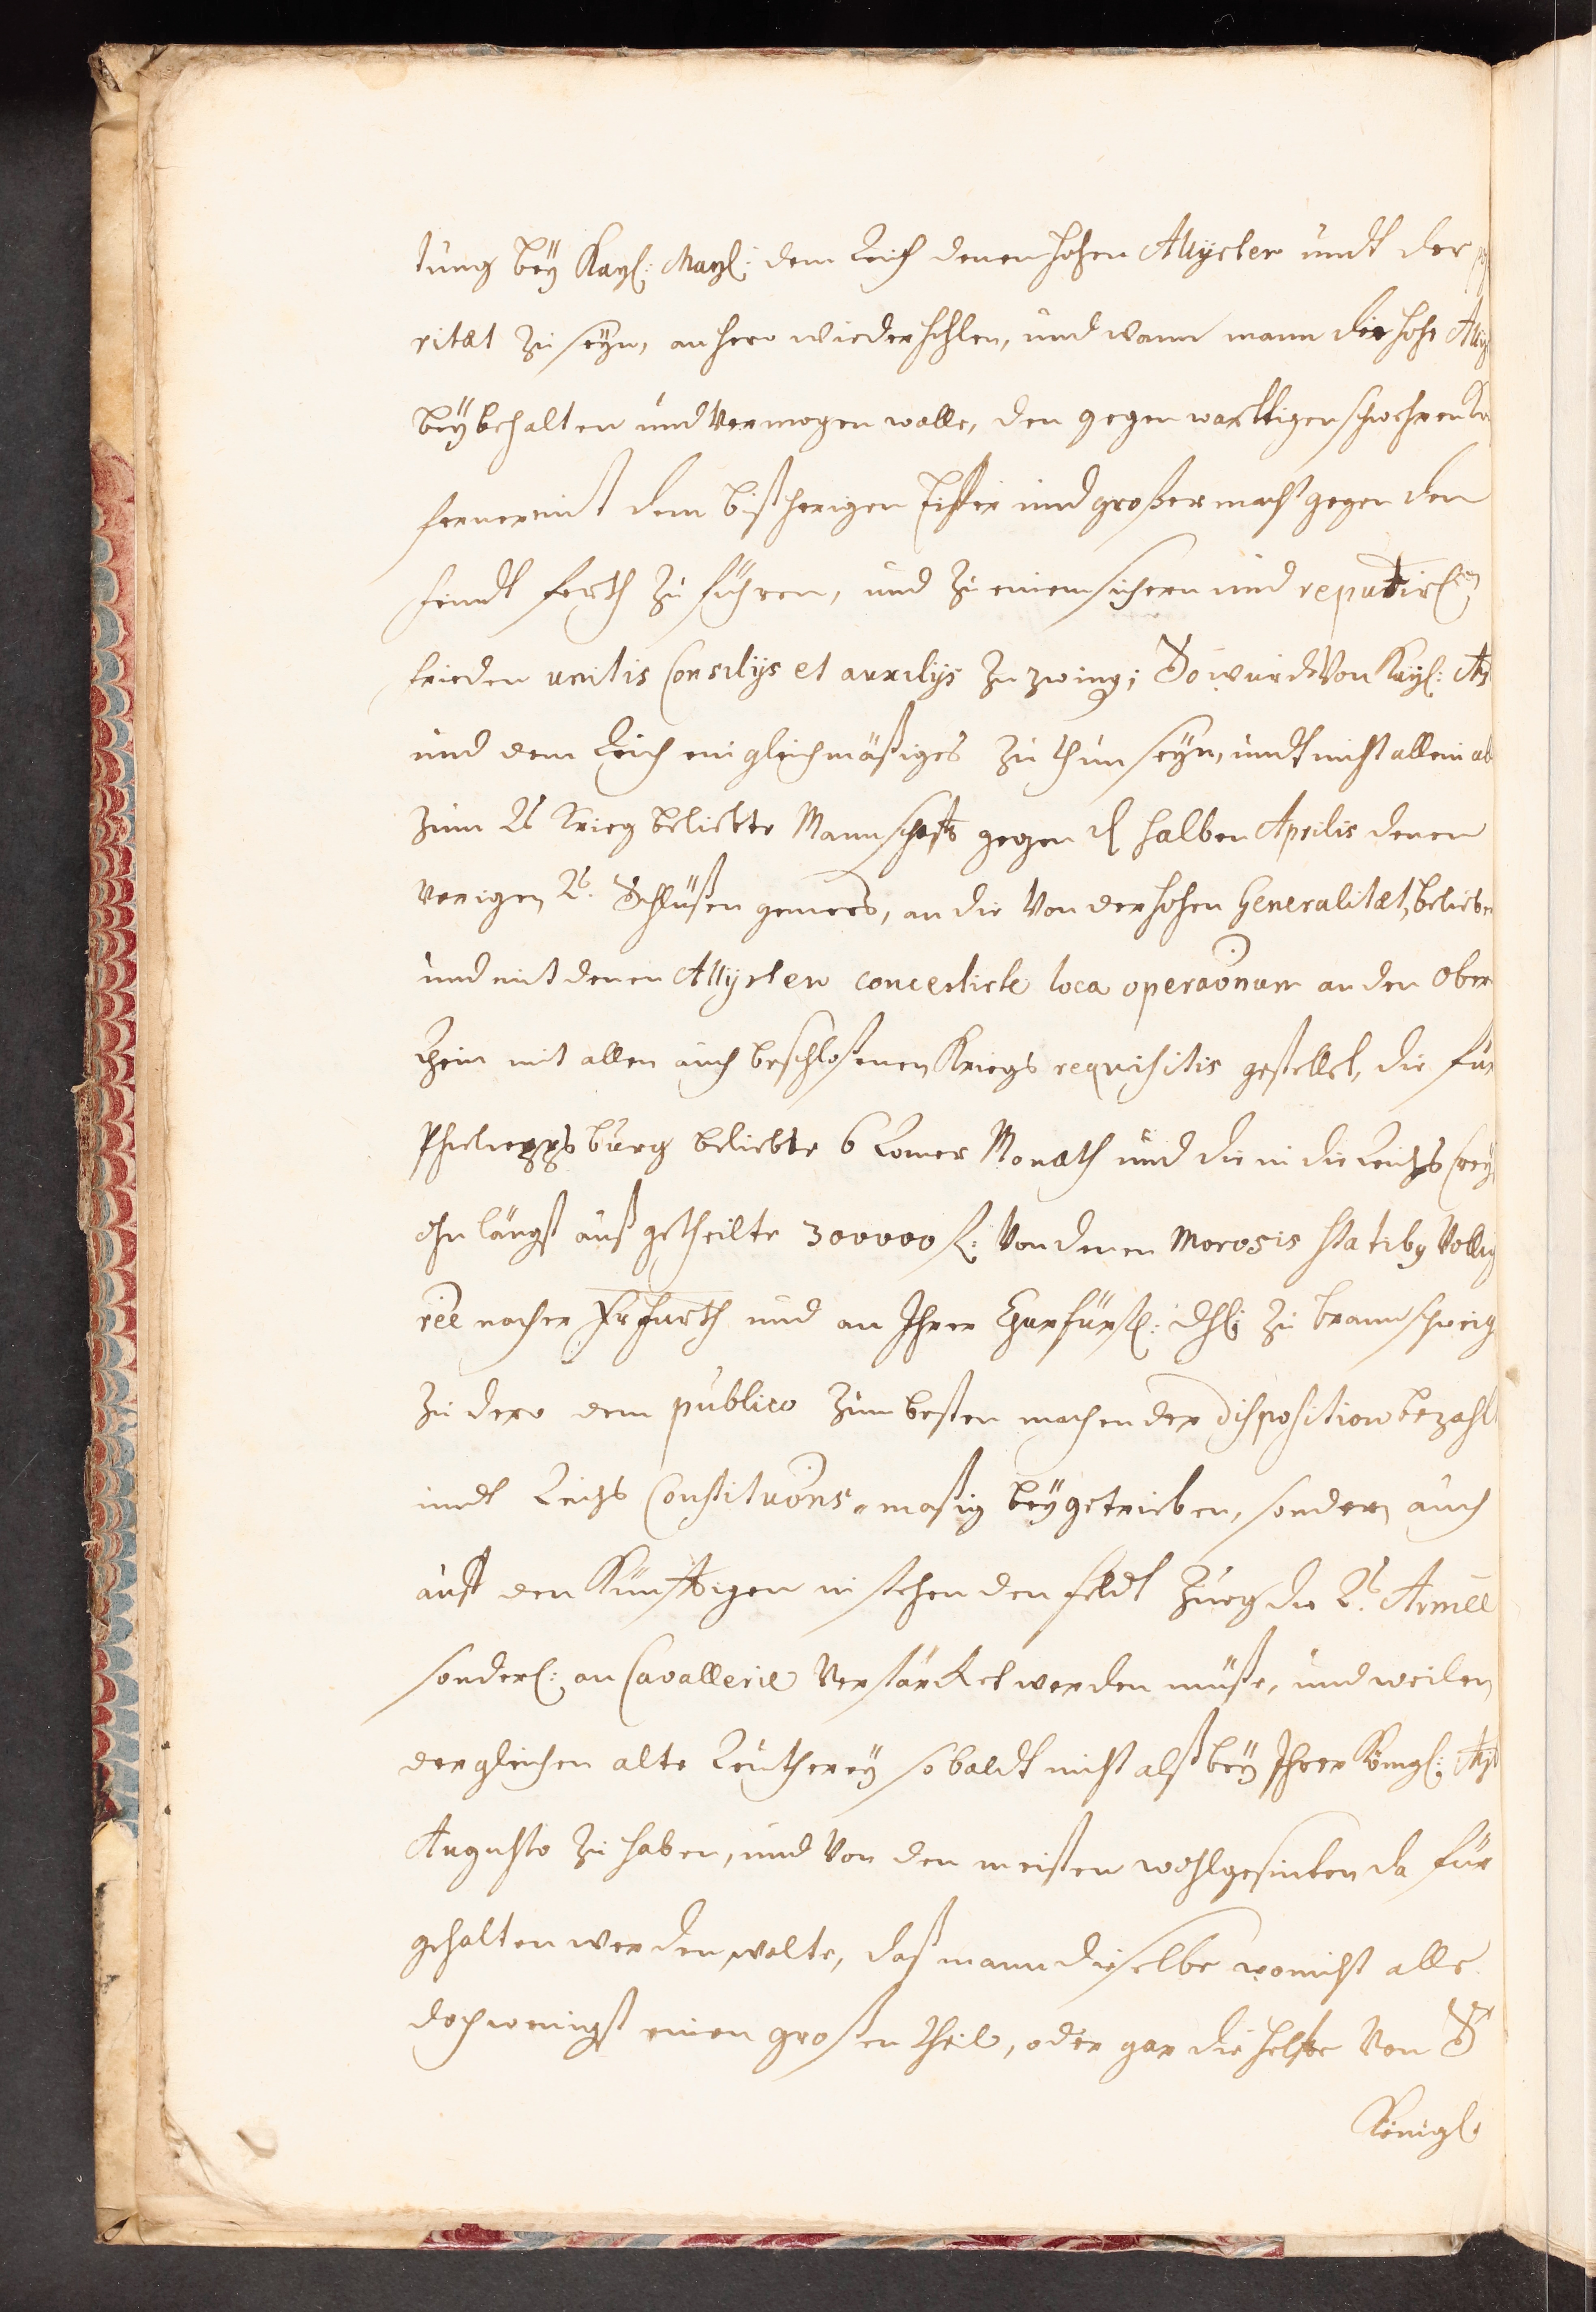 tung bey Kayl: Mayl: dem Reich denen hohen Allyrten undt der
ritæt zu seyn, anhero wiederhohlen, und wann mann die hohe
beybehalten und vermogen wolle, den gegenwarttigen schwehren
ferner mit dem bißherigen Eiffer und großer macht gegen den
feindt forth zu führen, und zu einem sichern und reputirl:
frieden unitis Consilijs et auxilijs zu zwing; So wurde von Kayl:
und dem Reich ein gleichmäßiges zu thun seyn, undt nicht allein
zum Rs Krieg beliebte Mannschafft gegen d halben Aprilis denen
vorigen Rs. Schlüßen gemees, an die von der hohen Generalitæt beliebe
und mit denen Allyrten concertirte loca operaõnum an den Ober
Rhein mit allen auch beschloßenen Kriegs requisitis gestellet, die für
Philippsburg beliebte 6 Romer Monath und die in die Reichs
ohnlängst außgetheilte 300000 f: von denen morosis statiby vollig
nacher Frfurth und an Ihrer Churfürstl: dhl: zu braunschweig
zu dero dem publico zum besten machender disposition bezahlt
undt Reichs Constituõns-maßig beygetrieben, sondern auch
auff den Künfftigen instehenden feldt Zueg die Rs. Armée
sonderl: an Cavallerie verstärcket werden müße, und weilen
dergleichen alte Reutherey sobaldt nicht alß bey Ihrer Königl:
Augusto zu haben, und von den meisten wohlgesinten da für
gehalten werden wolte, daß mann dieselbe wo nicht alle
doch wenigst einen großen theil, oder gar die helfte von S
Königl.